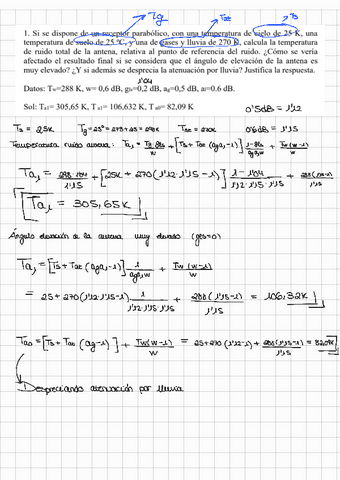 Tg Tat Ts
1. Si se dispone de un receptor parabólico, con una temperatura de cielo de 25 K, una
temperatura de suelo de 25 ºC, y una de gases y lluvia de 270 K, calcula la temperatura
de ruido total de la antena, relativa al punto de referencia del ruido. ¿Cómo se vería
afectado el resultado final si se considera que el ángulo de elevación de la antena es
muy elevado? ¿Y si además se desprecia la atenuación por lluvia? Justifica la respuesta.
1'04
Datos: Tw=288 K, w= 0,6 dB, gs=0,2 dB, ag=0,5 dB, al=0.6 dB.
0'5dB = 1'12
Sol: Ta1= 305,65 K, Ta1= 106,632 K, Ta0= 82,09 K
Ts = 25K Tg = 25º = 273+25 = 298K Tat = 270K 0'6dB = 1'15
Temperatura ruido antena: Ta1 =
Ta1 = 298·1'04/1'15 + [25K + 270(1'12·1'15-1)]
Ta1 = 305,65K
Ángulo elevación de la antena muy elevado (gs=0)
Ta1 = [Ts + Tat(ag·al-1)] 1/ag·al·w + Tw(w-1)/w
= 25+270(1'12·1'15-1) 1/1'12·1'15·1'15 + 288(1'15-1)/1'15 = 106,32K
Ta0 = [Ts + Tat(ag-1)] + Tw(w-1)/w = 25+270(1'12-1) + 288(1'15-1)/1'15 = 82'09K
Despreciando atenuación por lluvia